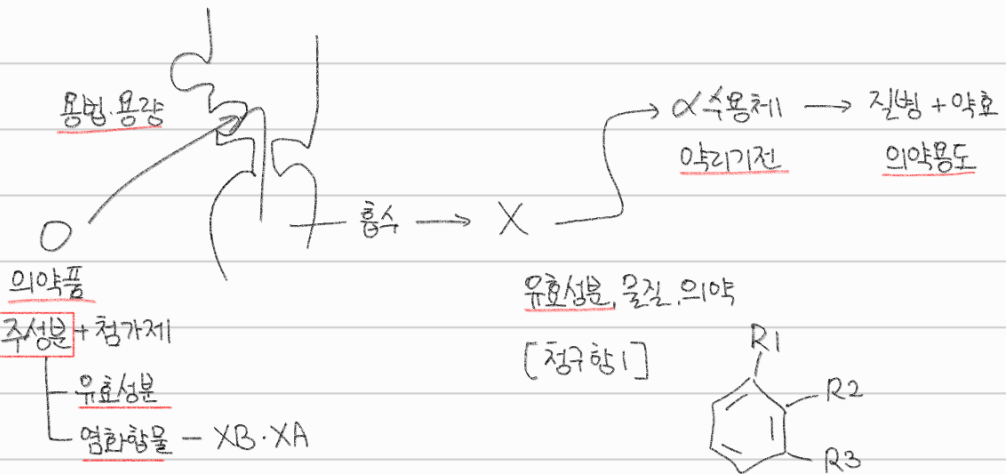 용법·용량
α수용체 → 질병 + 약효
약리기전
의약용도
흡수 → X
의약품
주성분 + 첨가제
유효성분
염화합물 - XB·XA
유효성분, 물질, 의약
[청구항1]
R1
R2
R3